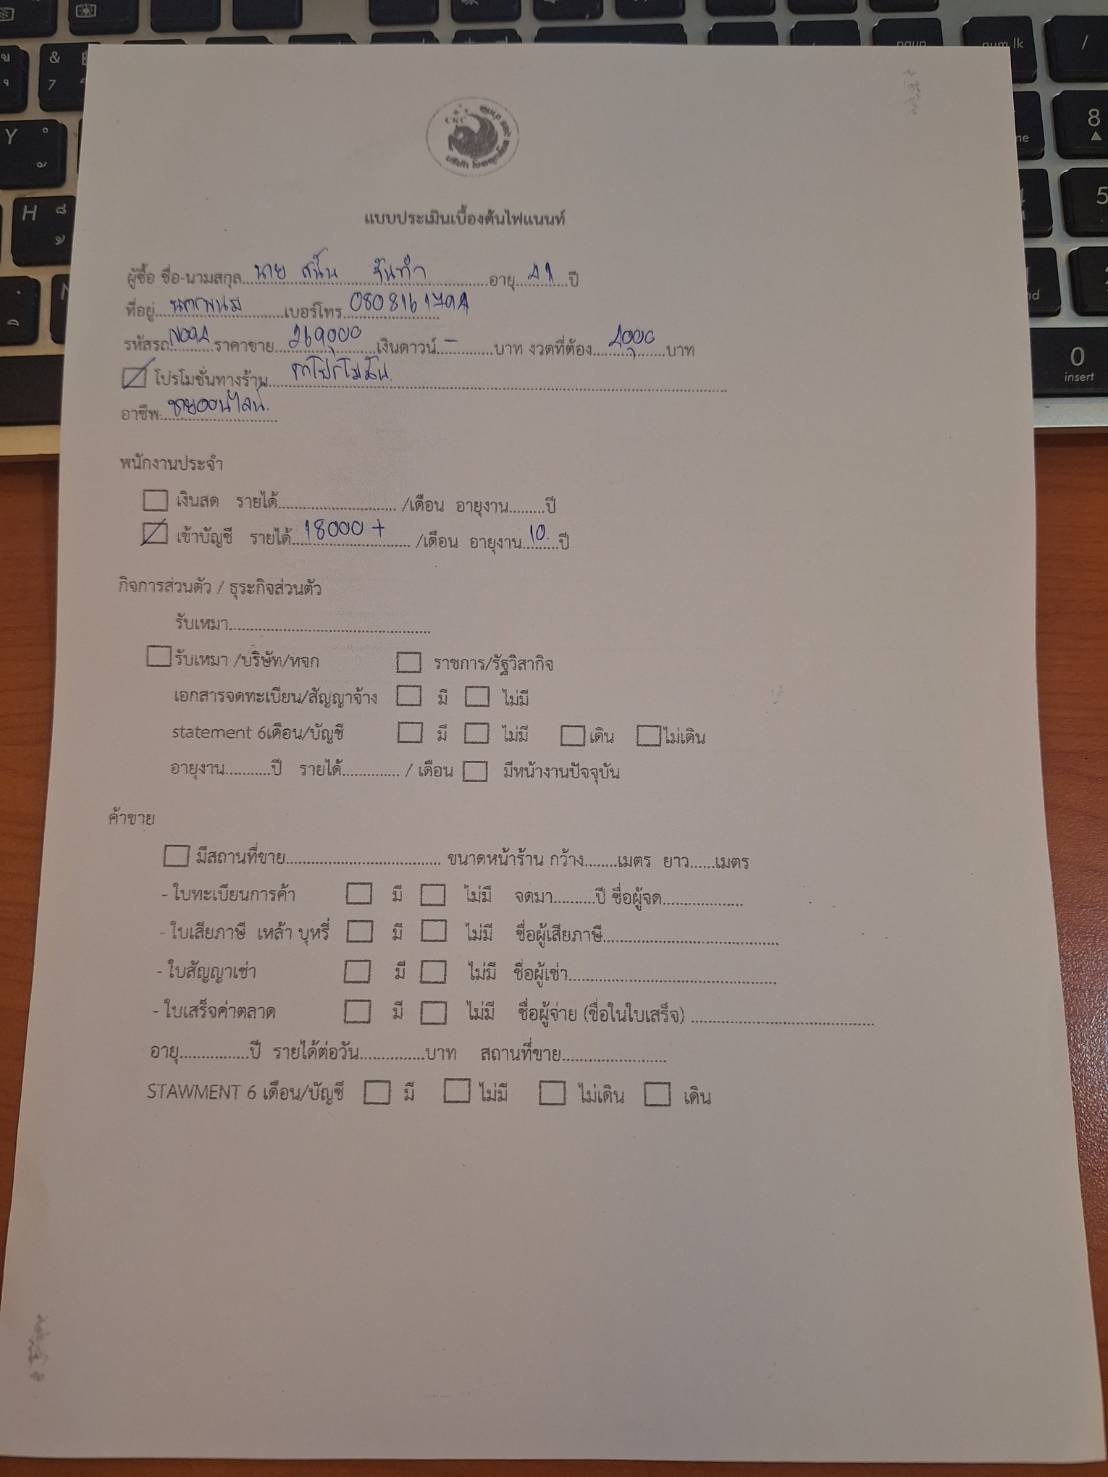 แบบประเมินเบื้องต้นไฟแนนท์
ผู้ซื้อ ชื่อ-นามสกุล....นาย สนั่น จันทำ....อายุ....41....ปี
ที่อยู่....นครพนม....เบอร์โทร....
รหัสรถ....N094....ราคาขาย....269000....เงินดาวน์..-......บาท งวดที่ต้อง....4000....บาท
โปรโมชั่นทางร้าน....รถโปรโมชั่น....
อาชีพ:....ขายออนไลน์....
พนักงานประจำ
เงินสด รายได้............................ /เดือน อายุงาน.........ปี
เข้าบัญชี รายได้....18000 +.... /เดือน อายุงาน....10....ปี
กิจการส่วนตัว / ธุระกิจส่วนตัว
รับเหมา................................................
รับเหมา /บริษัท/หจก ราชการ/รัฐวิสากิจ
เอกสารจดทะเบียน/สัญญาจ้าง มี ไม่มี
statement 6เดือน/บัญชี มี ไม่มี เดิน ไม่เดิน
อายุงาน...........ปี รายได้.............. / เดือน มีหน้างานปัจจุบัน
ค้าขาย
มีสถานที่ขาย..................................... ขนาดหน้าร้าน กว้าง........เมตร ยาว......เมตร
- ใบทะเบียนการค้า มี ไม่มี จดมา..........ปี ชื่อผู้จด....................
- ใบเสียภาษี เหล้า บุหรี่ มี ไม่มี ชื่อผู้เสียภาษี...........................................
- ใบสัญญาเช่า มี ไม่มี ชื่อผู้เช่า..................................................
- ใบเสร็จค่าตลาด มี ไม่มี ชื่อผู้จ่าย (ชื่อในใบเสร็จ) ............................................
อายุ.................ปี รายได้ต่อวัน................บาท สถานที่ขาย.........................
STAWMENT 6 เดือน/บัญชี มี ไม่มี ไม่เดิน เดิน